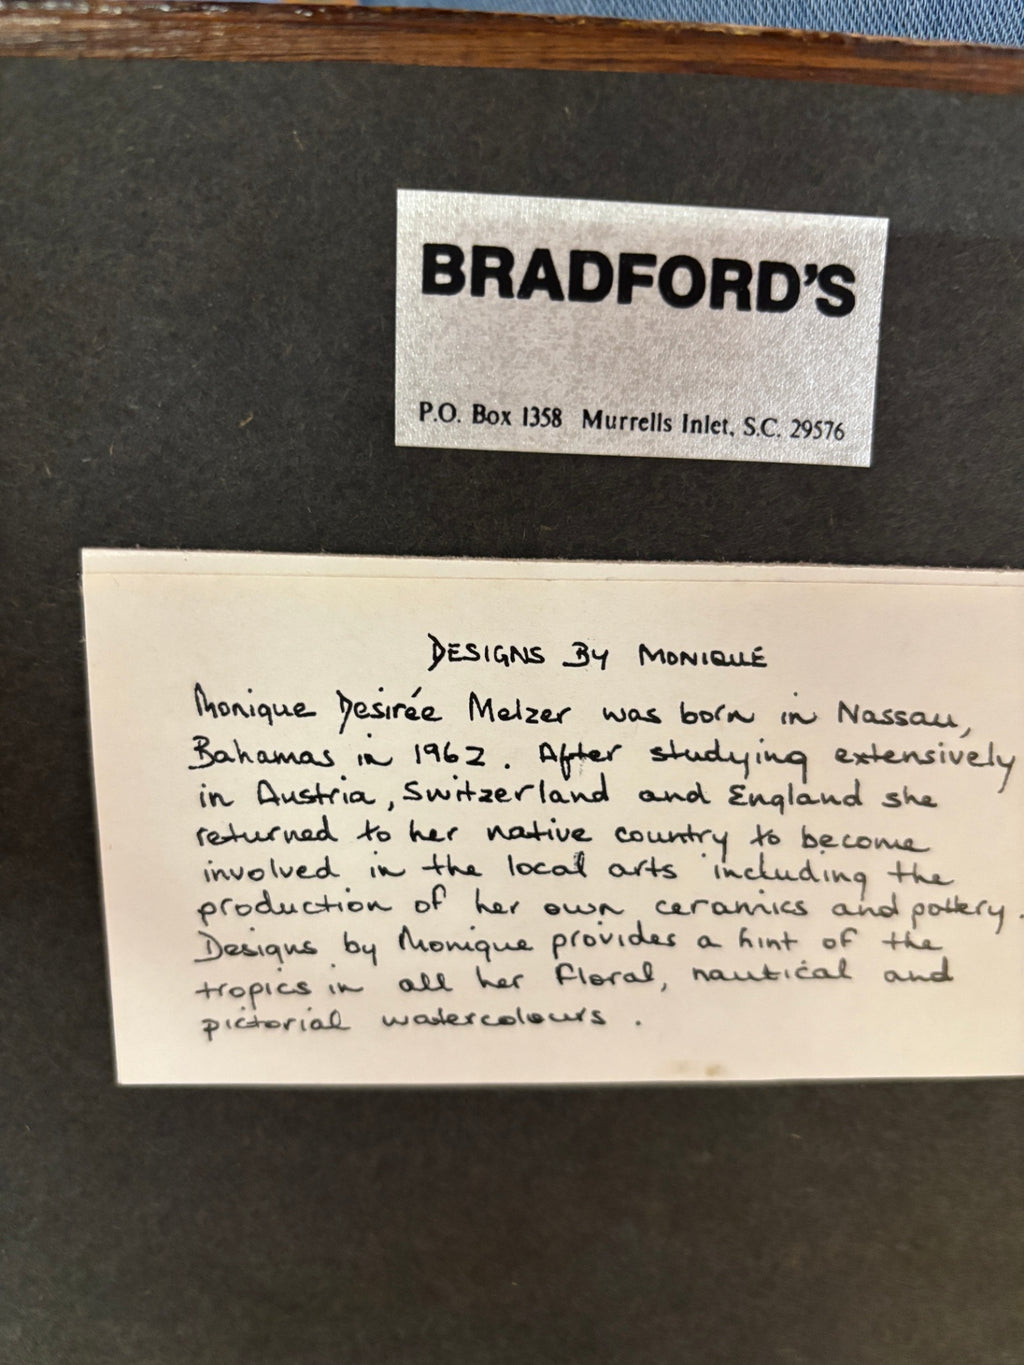 BRADFORD'S
P.O. Box 1358 Murrells Inlet, S.C. 29576
DESIGNS BY MONIQUE
Monique Desirée Melzer was born in Nassau,
Bahamas in 1962. After studying extensively
in Austria, Switzerland and England she
returned to her native country to become
involved in the local arts including the
production of her own ceramics and pottery.
Designs by Monique provides a hint of the
tropics in all her floral, nautical and
pictorial watercolours.